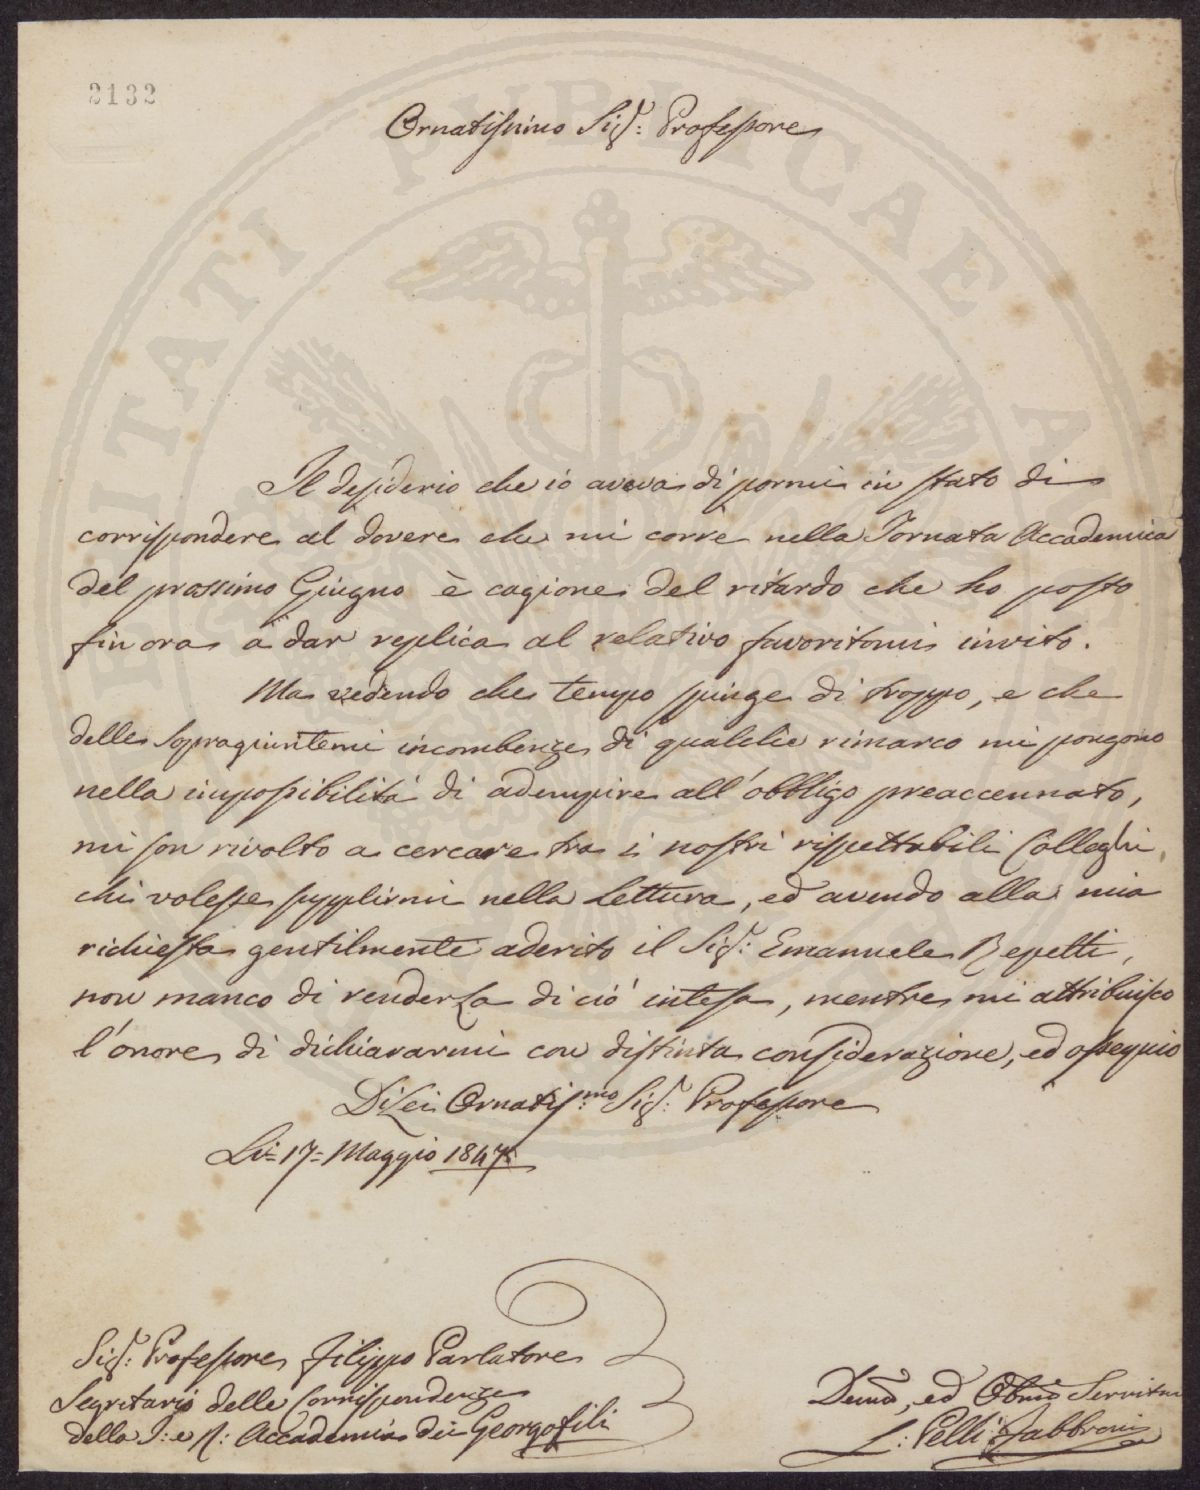 2132
Ornatissimo Sig.r: Professore
Il desiderio che io aveva di pormi in stato di
corrispondere al dovere che mi corre nella Tornata Accademica
del prossimo Giugno è cagione del ritardo che ho posto
fin ora a dar replica al relativo favoritomi invito.
Ma vedendo che tempo spinge di troppo, e che
delle sopragiuntemi incombenze di qualche rimarco mi pongono
nella impossibilità di adempire all'obbligo preaccennato,
mi son rivolto a cercare tra i nostri rispettabili Colleghi,
chi volesse supplirmi nella Lettura, ed avendo alla mia
richiesta gentilmente aderito il Sig.r: Emanuele Repetti,
non manco di renderLa di ciò intesa, mentre mi attribuisco
l'onore di dichiararmi con distinta considerazione, ed ossequio
Di Lei Ornatis.mo Sig.r: Professore
Li= 17= Maggio 1847.
Sig.r: Professore Filippo Parlatore
Segretario delle Corrispondenze
della I: e R: Accademia dei Georgofili
Devmo, ed Obmo Servitore
L: Pelli Fabbroni
PUBLICAE